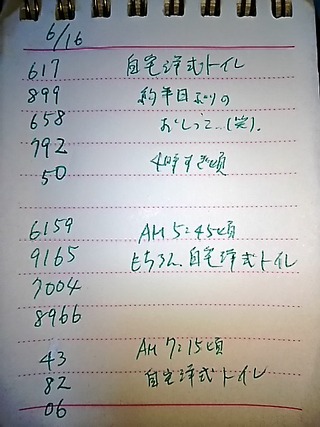 6/16
617 自宅洋式トイレ
899 約半日ぶりの
658 おしっこ…(笑).
792
50 4時すぎ頃
6159 AM 5:45頃
9165 もちろん、自宅洋式トイレ
7004
8966
43 AM 7:15頃
82 自宅洋式トイレ
06